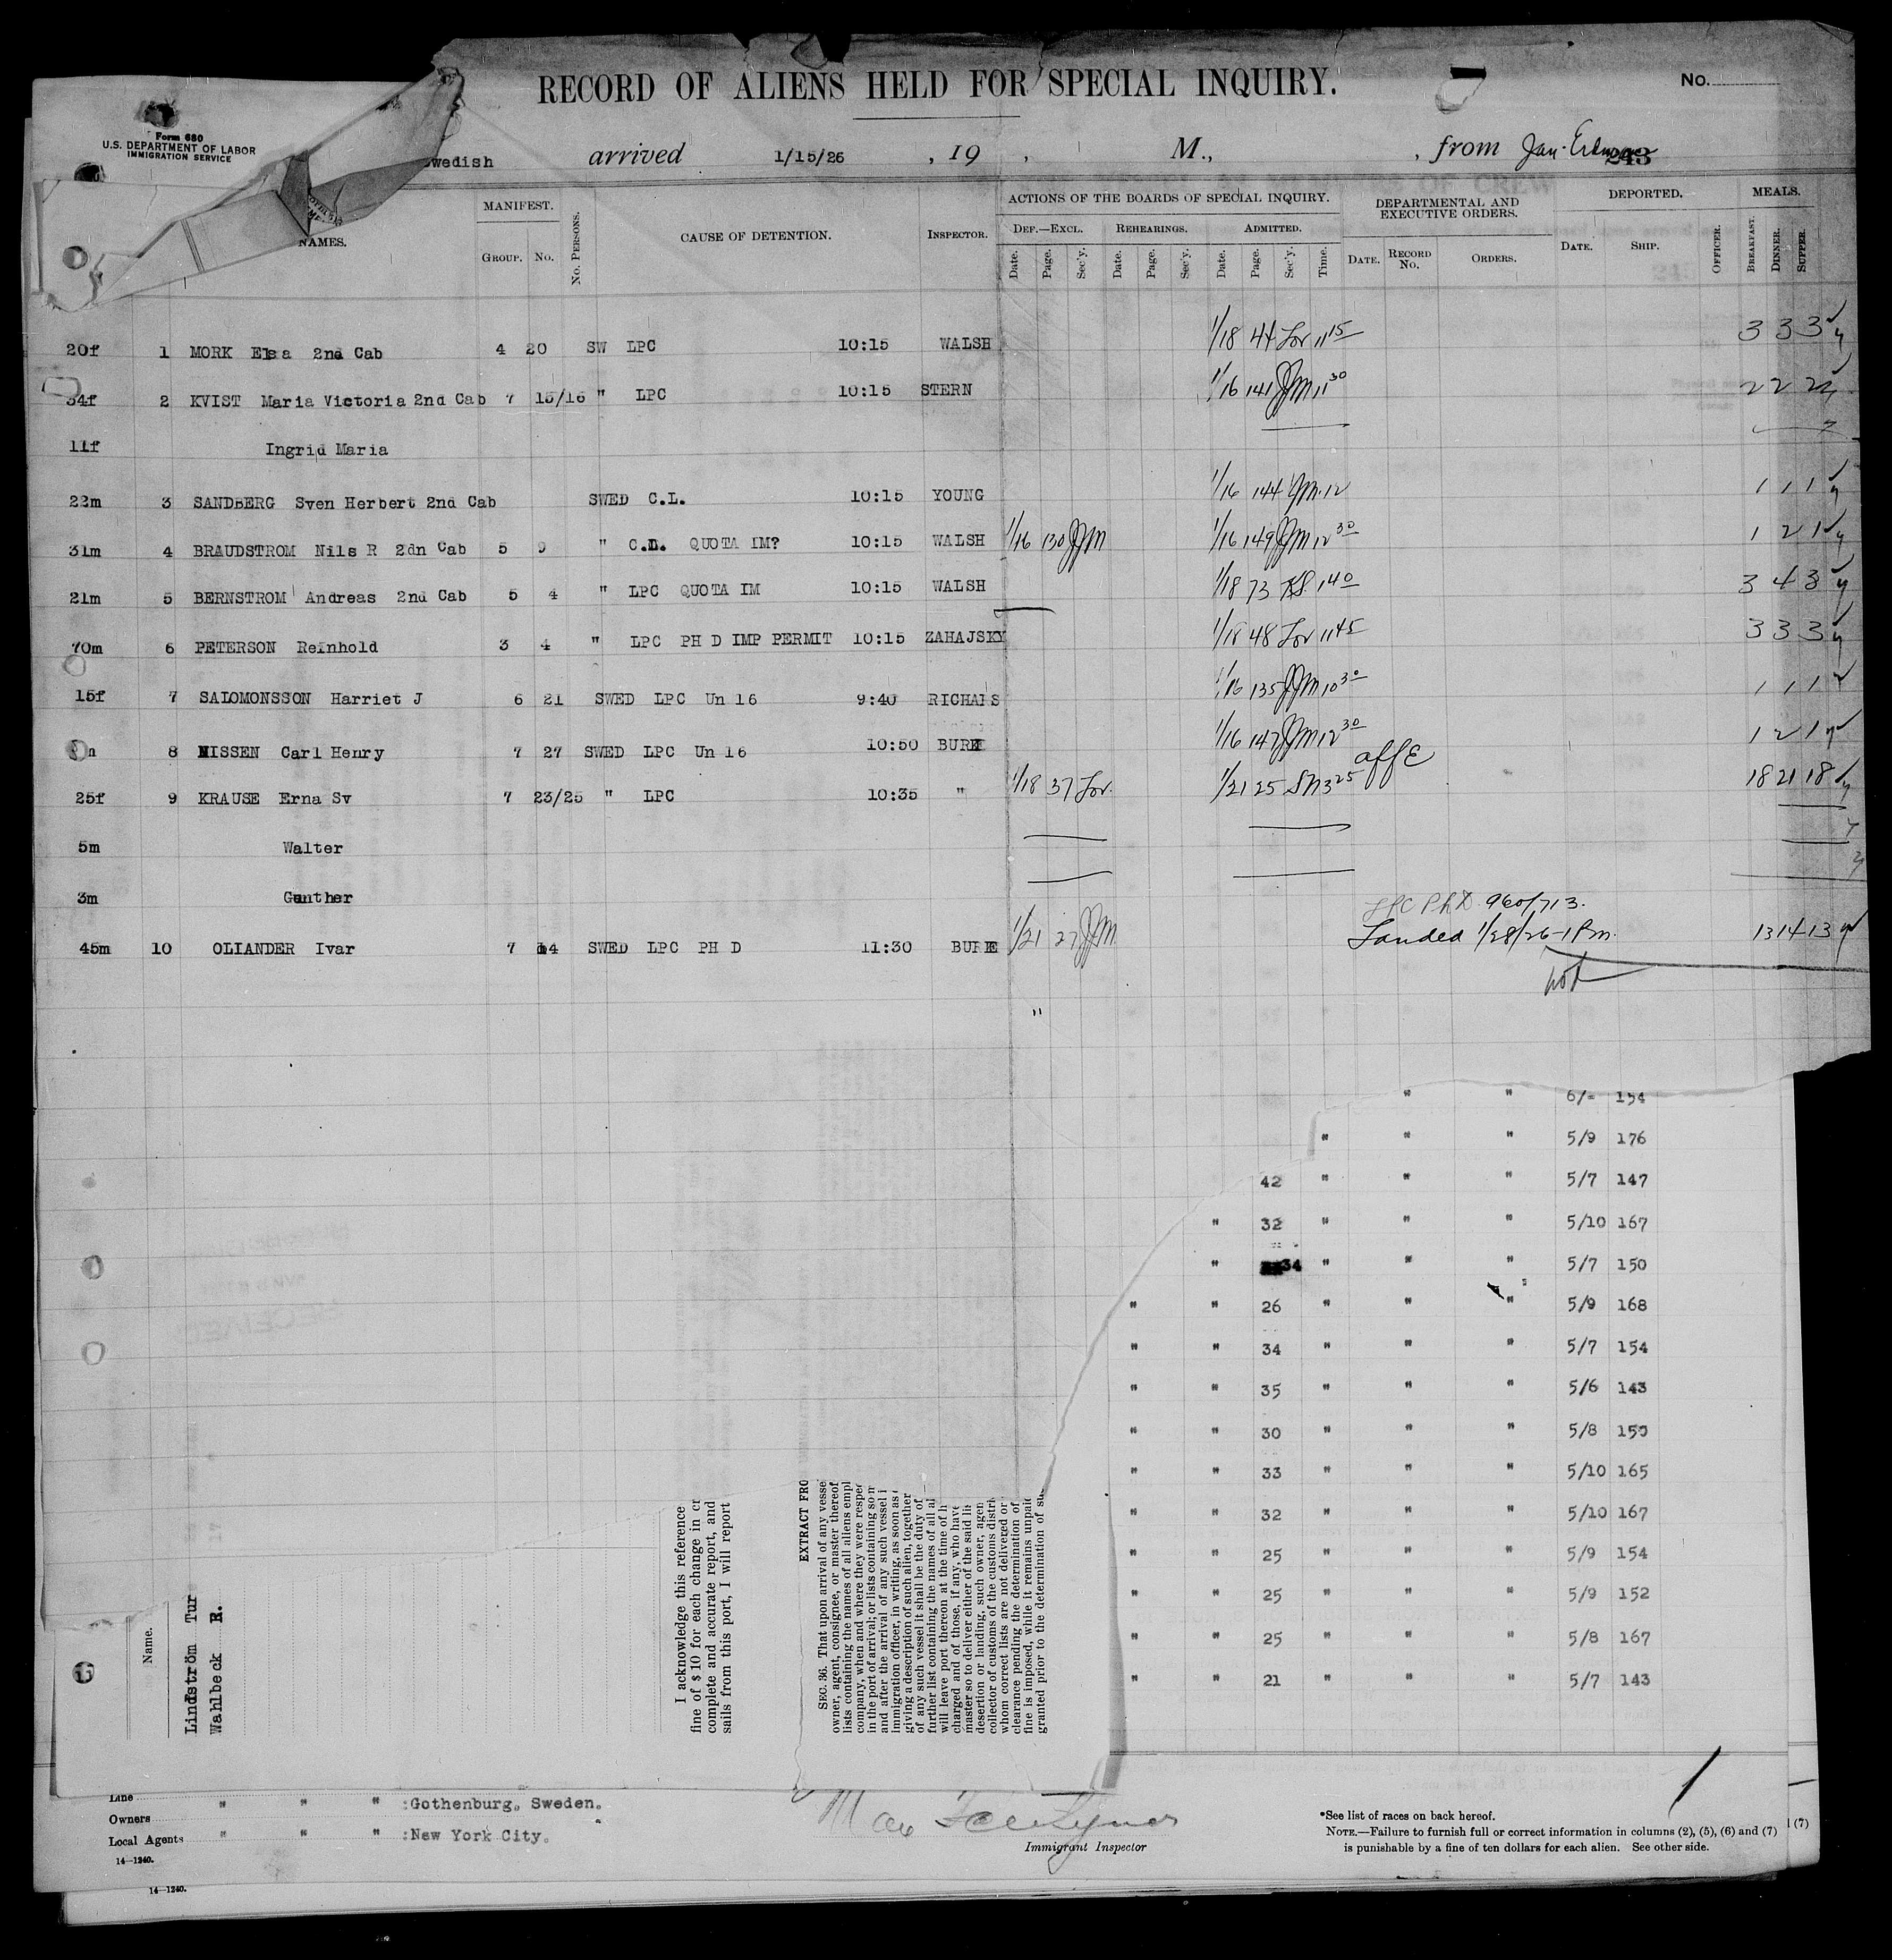 RECORD OF ALIENS HELD FOR SPECIAL INQUIRY.
No.
Form 680
U.S. DEPARTMENT OF LABOR
IMMIGRATION SERVICE
Swedish arrived 1/15/26 , 19 , M., , from Jan- 243
NAMES. MANIFEST. GROUP. No. No. PERSONS. CAUSE OF DETENTION. INSPECTOR.
ACTIONS OF THE BOARDS OF SPECIAL INQUIRY. DEPARTMENTAL AND EXECUTIVE ORDERS. DEPORTED. MEALS.
DEF.—EXCL. REHEARINGS. ADMITTED.
Date. Page. Sec'y. Date. Page. Sec'y. Date. Page. Sec'y. Time. DATE. RECORD No. ORDERS. DATE. SHIP. OFFICER. BREAKFAST. DINNER. SUPPER.
20f 1 MORK Elsa 2nd Cab 4 20 SW LPC 10:15 WALSH 1/18 44 Lor 11 15 3 3 3
34f 2 KVIST Maria Victoria 2nd Cab 7 15/16 " LPC 10:15 STERN 1/16 141 JJM 11 30 2 2 2
11f Ingrid Maria
22m 3 SANDBERG Sven Herbert 2nd Cab SWED C.L. 10:15 YOUNG 1/16 144 JJM 12 1 1 1
31m 4 BRAUDSTROM Nils R 2dn Cab 5 9 " C.D. QUOTA IM? 10:15 WALSH 1/16 130 JJM 1/16 149 JJM 12 30 1 2 1
21m 5 BERNSTROM Andreas 2nd Cab 5 4 " LPC QUOTA IM 10:15 WALSH 1/18 73 1 40 3 4 3
70m 6 PETERSON Reinhold 3 4 " LPC PH D IMP PERMIT 10:15 ZAHAJSKY 1/18 48 Lor 11 45 3 3 3
15f 7 SALOMONSSON Harriet J 6 21 SWED LPC Un 16 9:40 RICHARS 1/16 135 JJM 10 30 1 1 1
8 NISSEN Carl Henry 7 27 SWED LPC Un 16 10:50 BURKE 1/16 147 JJM 12 30 1 2 1
25f 9 KRAUSE Erna Sv 7 23/25 " LPC 10:35 " 1/18 37 Lor. 1/21 25 SN 3 25 18 21 18
5m Walter
3m Gunther
LPC PhD. 960/713.
45m 10 OLIANDER Ivar 7 14 SWED LPC PH D 11:30 BURKE 1/21 27 JJM Landed 1/28/26 - 1 Pm. 13 14 13
"
" " 6/ 154
" " " 5/9 176
42 " " " 5/7 147
" 32 " " " 5/10 167
" 34 " " " 5/7 150
" " 26 " " " 5/9 168
" " 34 " " " 5/7 154
" " 35 " " " 5/6 143
" " 30 " " " 5/8 150
" " 33 " " " 5/10 165
" " 32 " " " 5/10 167
" " 25 " " " 5/9 154
" " 25 " " " 5/9 152
" " 25 " " " 5/8 167
" " 21 " " " 5/7 143
Name.
Lindström Tur
Wahlbeck R.
I acknowledge this reference
fine of $10 for each change in cr
complete and accurate report, and
sails from this port, I will report
EXTRACT FRO
SEC. 36. That upon arrival of any vesse
owner, agent, consignee, or master thereof
lists containing the names of all aliens empl
company, when and where they were respec
in the port of arrival; or lists containing so m
and after the arrival of any such vessel i
immigration officer, in writing, as soon as
giving a description of such alien, together
of any such vessel it shall be the duty of
further list containing the names of all al
will leave port thereon at the time of h
charged and of those, if any, who have
master so to deliver either of the said li
desertion or landing, such owner, agen
collector of customs of the customs distri
whom correct lists are not delivered or
clearance pending the determination of
fine is imposed, while it remains unpaid
granted prior to the determination of su
Line " " " :Gothenburg, Sweden.
Owners
Local Agents " " " :New York City.
14—1240.
Immigrant Inspector
*See list of races on back hereof.
NOTE.—Failure to furnish full or correct information in columns (2), (5), (6) and (7)
is punishable by a fine of ten dollars for each alien. See other side.
(7)
14—1240.